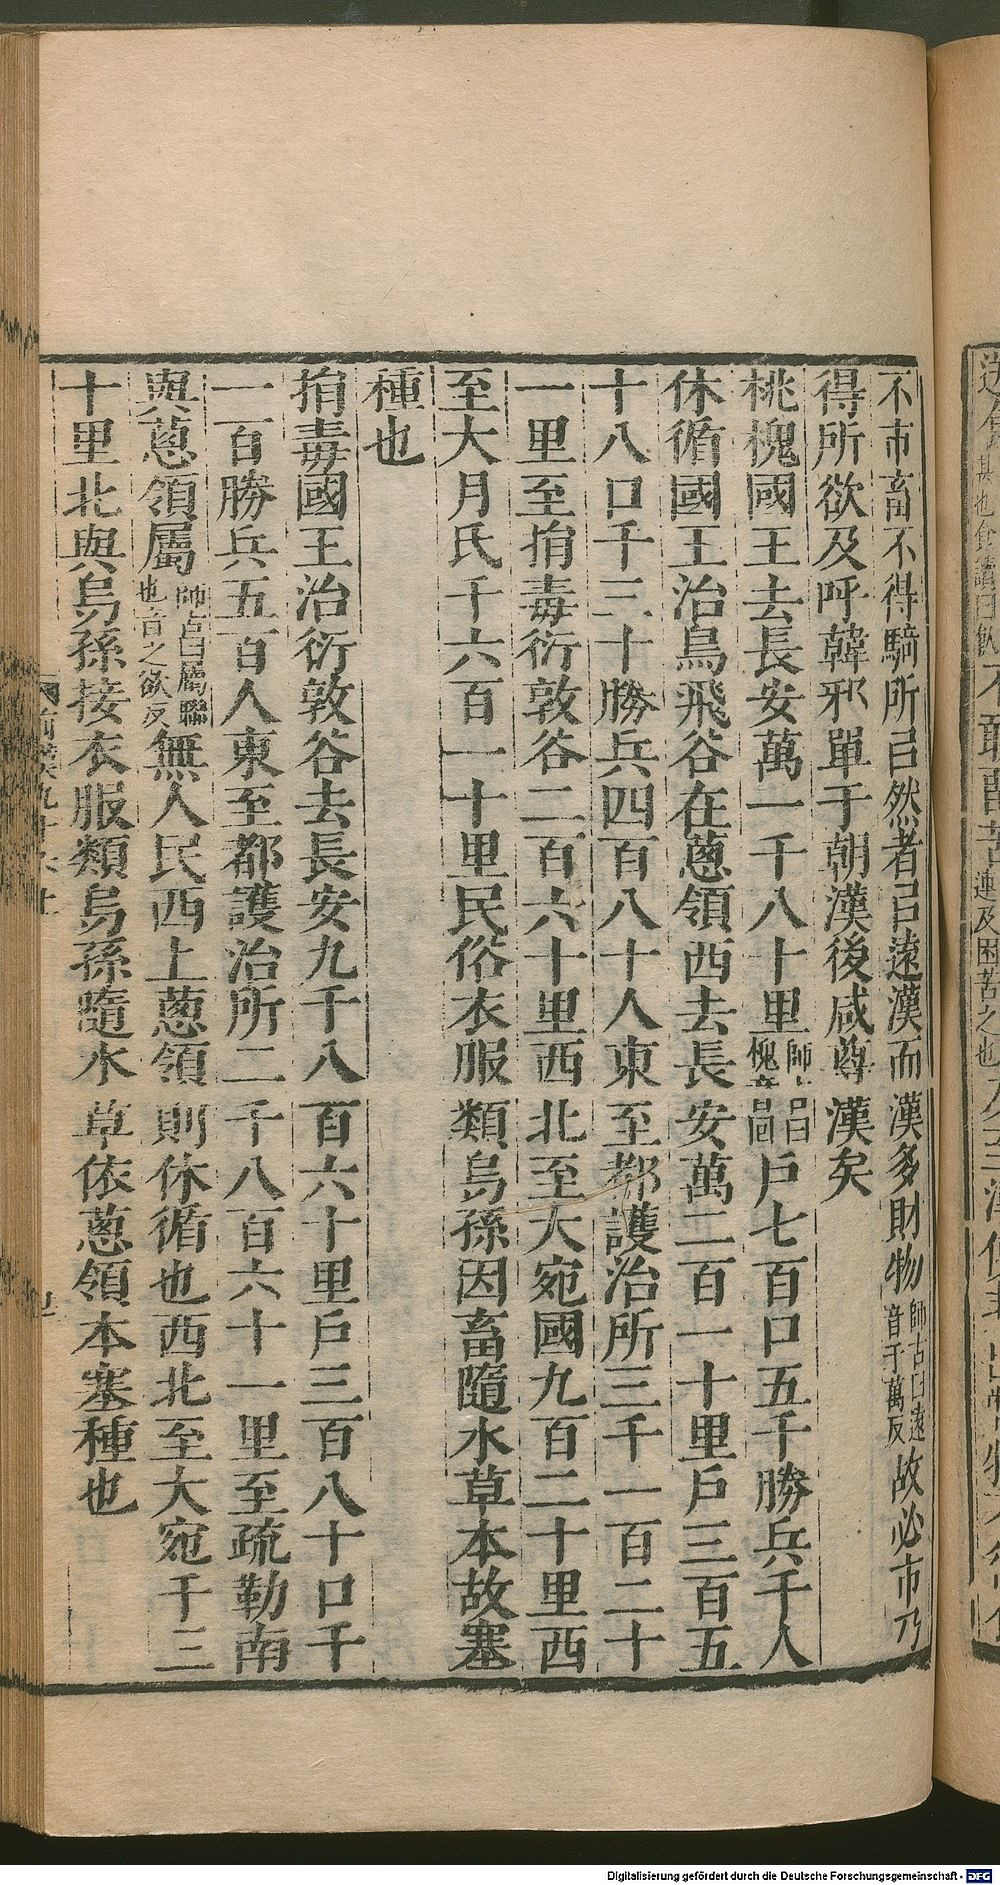 不市畜不得騎所㠯然者㠯遠漢而漢多財物師古曰遠音于萬反故必市乃
得所欲及呼韓邪單于朝漢後咸尊漢矣
桃槐國王去長安萬一千八十里師槐音回戶七百口五千勝兵千人
休循國王治鳥飛谷在蔥領西去長安萬二百一十里戶三百五
十八口千三十勝兵四百八十人東至都護治所三千一百二十
一里至捐毒衍敦谷二百六十里西北至大宛國九百二十里西
至大月氏千六百一十里民俗衣服類烏孫因畜隨水草本故塞
種也
捐毒國王治衍敦谷去長安九千八百六十里戶三百八十口千
一百勝兵五百人東至都護治所二千八百六十一里至疏勒南
與蔥領屬師古曰屬聯也音之欲反無人民西上蔥領則休循也西北至大宛千三
十里北與烏孫接衣服類烏孫隨水草依蔥領本塞種也
Digitalisierung gefördert durch die Deutsche Forschungsgemeinschaft - DFG